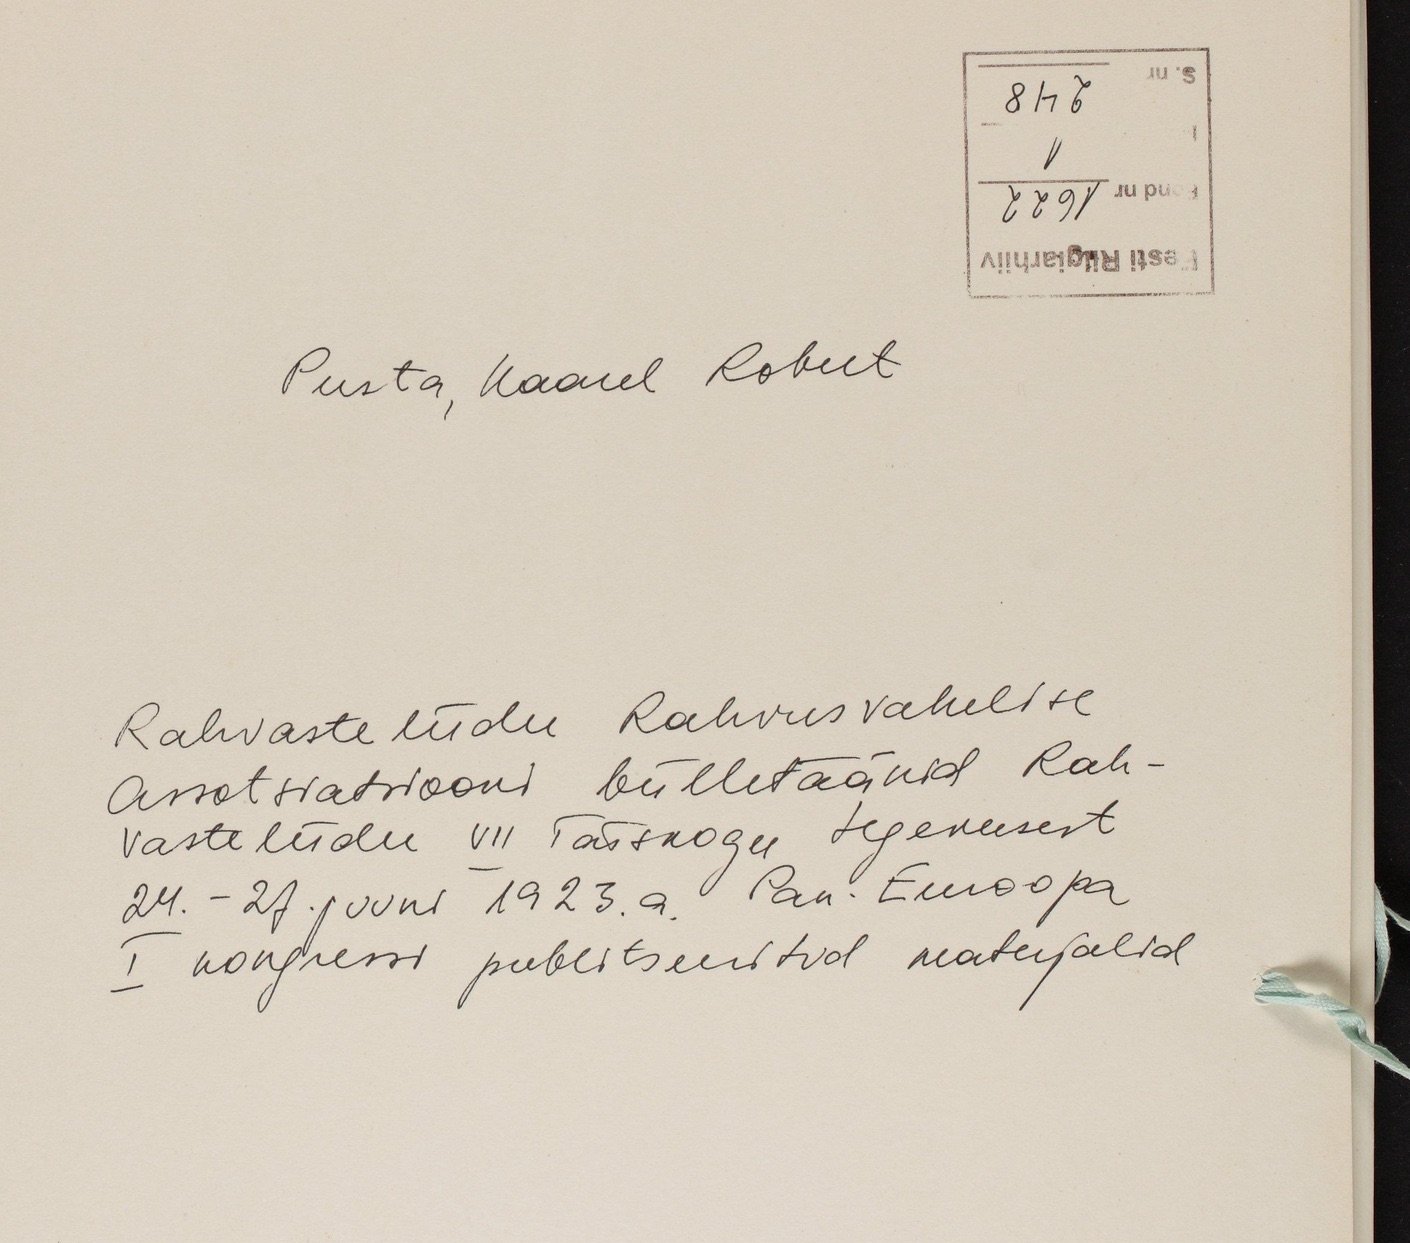 Eesti Riigiarhiiv
Fond nr 1622
1
S. nr 248
Pusta, Kaarel Robert
Rahvasteliidu Rahvusvahelise
Assotsiatsiooni bülletäänid Rah-
vasteliidu VII Täiskogu tegevusest
24. - 27. juuni 1923.a. Pan-Euroopa
I kongressi publitseeritud materjalid